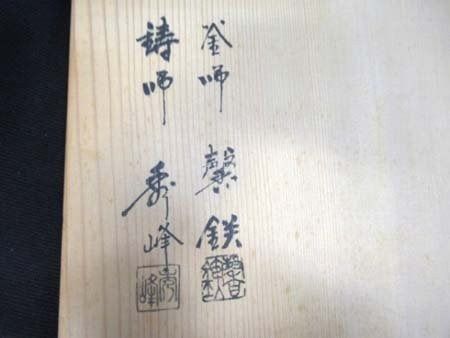 釜師 馨鉄
鋳師 秀峰
秀峰